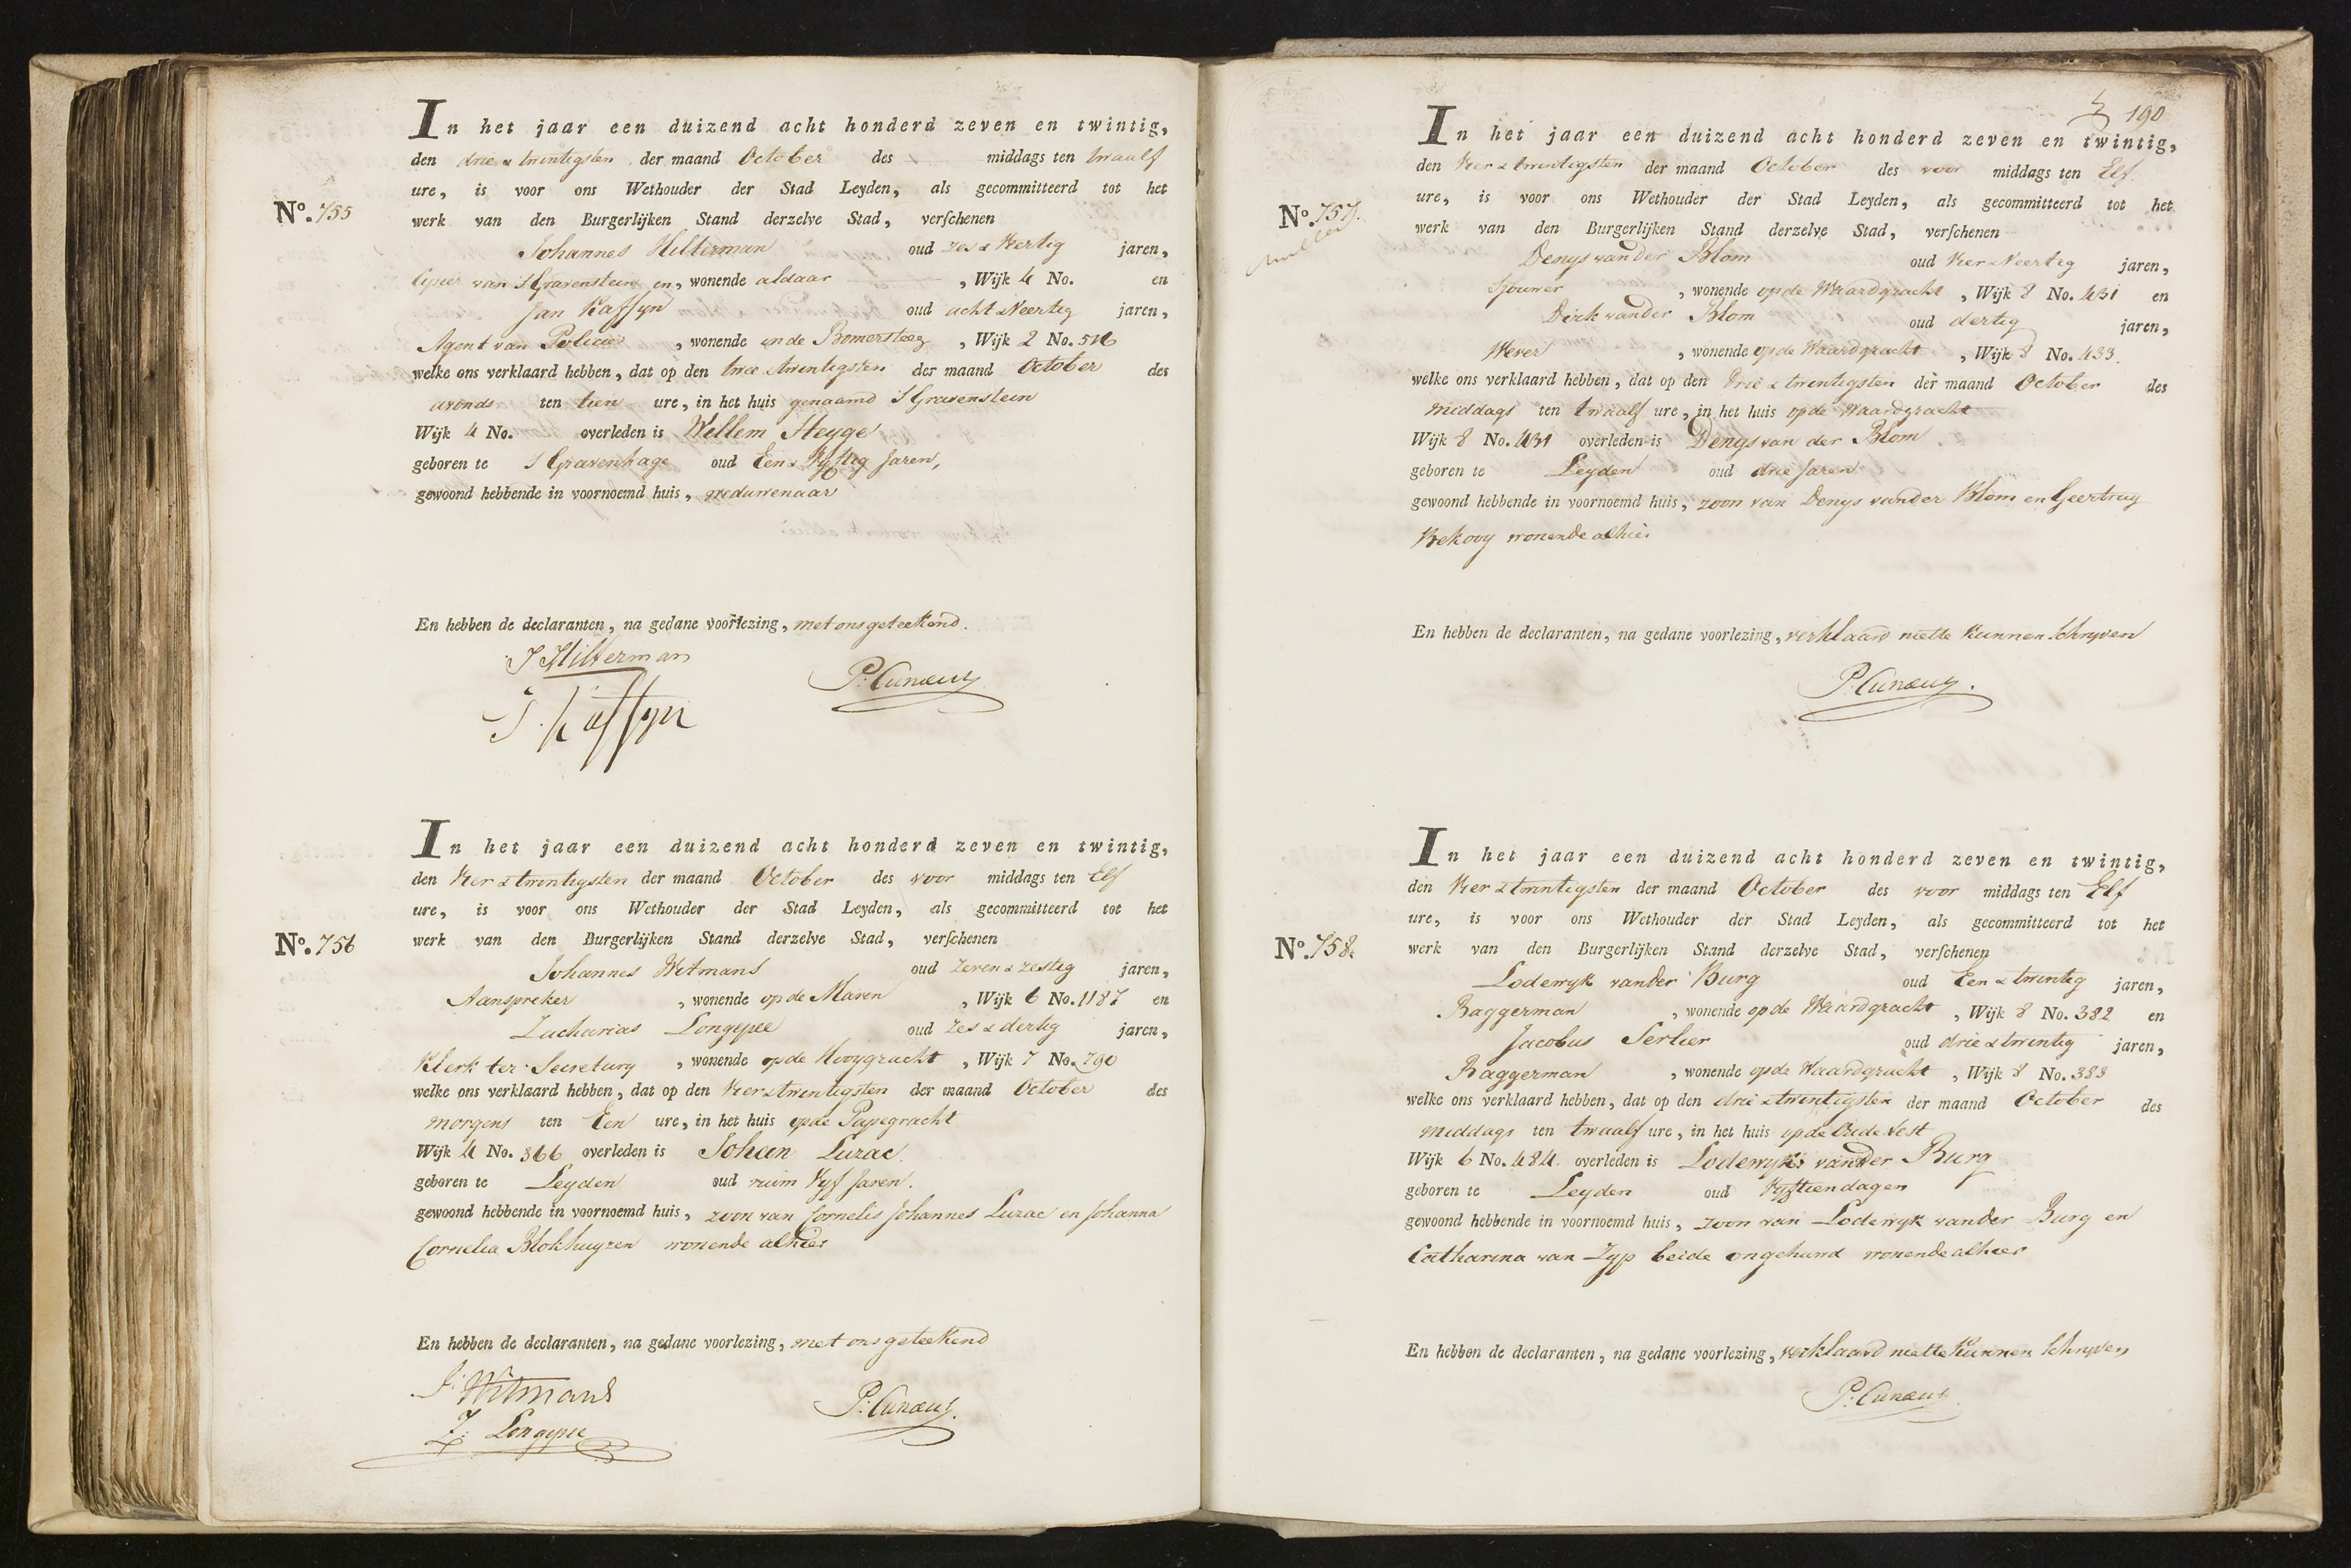 In het jaar een duizend acht honderd zeven en twintig,
den drie & twintigsten der maand October des - middags ten twaalf
ure, is voor ons Wethouder der Stad Leyden, als gecommitteerd tot het
No. 755 werk van den Burgerlijken Stand derzelve Stad, verschenen
Johannes Hilterman oud zes & veertig jaren,
Cipier van 'sGravenstein en, wonende aldaar, Wijk 4 No. en
Jan Kaffyn oud acht & Veertig jaren,
Agent van Policie, wonende in de Bomersteeg, Wijk 2 No. 526
welke ons verklaard hebben, dat op den twee & twintigsten der maand October des
avonds ten tien ure, in het huis genaamd 'sGravenstein
Wijk 4 No. overleden is Willem Heyge
geboren te sGravenhage oud Een & Vyftig Jaren,
gewoond hebbende in voornoemd huis, weduwenaar
En hebben de declaranten, na gedane voorlezing, met ons geteekend.
J Hilterman
P: Cunæus
J. Kaffyn
In het jaar een duizend acht honderd zeven en twintig,
den Vier & twintigsten der maand October des voor middags ten Elf
ure, is voor ons Wethouder der Stad Leyden, als gecommitteerd tot het
No. 756 werk van den Burgerlijken Stand derzelve Stad, verschenen
Johannes Witmans oud zeven & zestig jaren,
Aanspreker, wonende op de Maren, Wijk 6 No. 1187 en
Zacharias Longepee oud zes & dertig jaren,
Klerk ter Secretary, wonende op de Hooygracht, Wijk 7 No. 790
welke ons verklaard hebben, dat op den Vier & twintigsten der maand October des
morgens ten Een ure, in het huis op de Papegracht
Wijk 4 No. 366 overleden is Johan Luzac
geboren te Leyden oud ruim Vyf Jaren.
gewoond hebbende in voornoemd huis, zoon van Cornelis Johannes Luzac en Johanna
Cornelia Blokhuyzen wonende alhier
En hebben de declaranten, na gedane voorlezing, met ons geteekend
J: Witmans
P: Cunæus.
Z: Longepee
190
In het jaar een duizend acht honderd zeven en twintig,
den Vier & twintigsten der maand October des voor middags ten Elf
ure, is voor ons Wethouder der Stad Leyden, als gecommitteerd tot het
No. 757. werk van den Burgerlijken Stand derzelve Stad, verschenen
Denys vander Blom oud Vier & Veertig jaren,
Sjouwer, wonende op de Waardgracht, Wijk 8 No. 431 en
Dirk vander Blom oud dertig jaren,
Wever, wonende op de Waardgracht, Wijk 8 No. 433.
welke ons verklaard hebben, dat op den Drie & twintigsten der maand October des
middags ten twaalf ure, in het huis op de Waardgracht
Wijk 8 No. 431 overleden is Denys van der Blom
geboren te Leyden oud drie Jaren
gewoond hebbende in voornoemd huis, zoon van Denys vander Blom en Geertruy
Bekooy wonende alhier
En hebben de declaranten, na gedane voorlezing, verklaard niette kunnen Schryven
P: Cunæus.
In het jaar een duizend acht honderd zeven en twintig,
den Vier & twintigsten der maand October des voor middags ten Elf
ure, is voor ons Wethouder der Stad Leyden, als gecommitteerd tot het
No. 758. werk van den Burgerlijken Stand derzelve Stad, verschenen
Lodewyk vander Burg oud Een & twintig jaren,
Baggerman, wonende op de Waardgracht, Wijk 8 No. 382 en
Jacobus Serlier oud drie & twintig jaren,
Baggerman, wonende op de Waardgracht, Wijk 8 No. 383
welke ons verklaard hebben, dat op den drie & twintigsten der maand October des
middags ten twaalf ure, in het huis op de Oude Vest
Wijk 6 No. 484. overleden is Lodewyk vander Burg
geboren te Leyden oud Vyftien dagen
gewoond hebbende in voornoemd huis, zoon van Lodewyk vander Burg en
Catharina van Zyp beide ongehuwd wonende alhier
En hebben de declaranten, na gedane voorlezing, verklaard niette kunnen Schryven
P: Cunæus